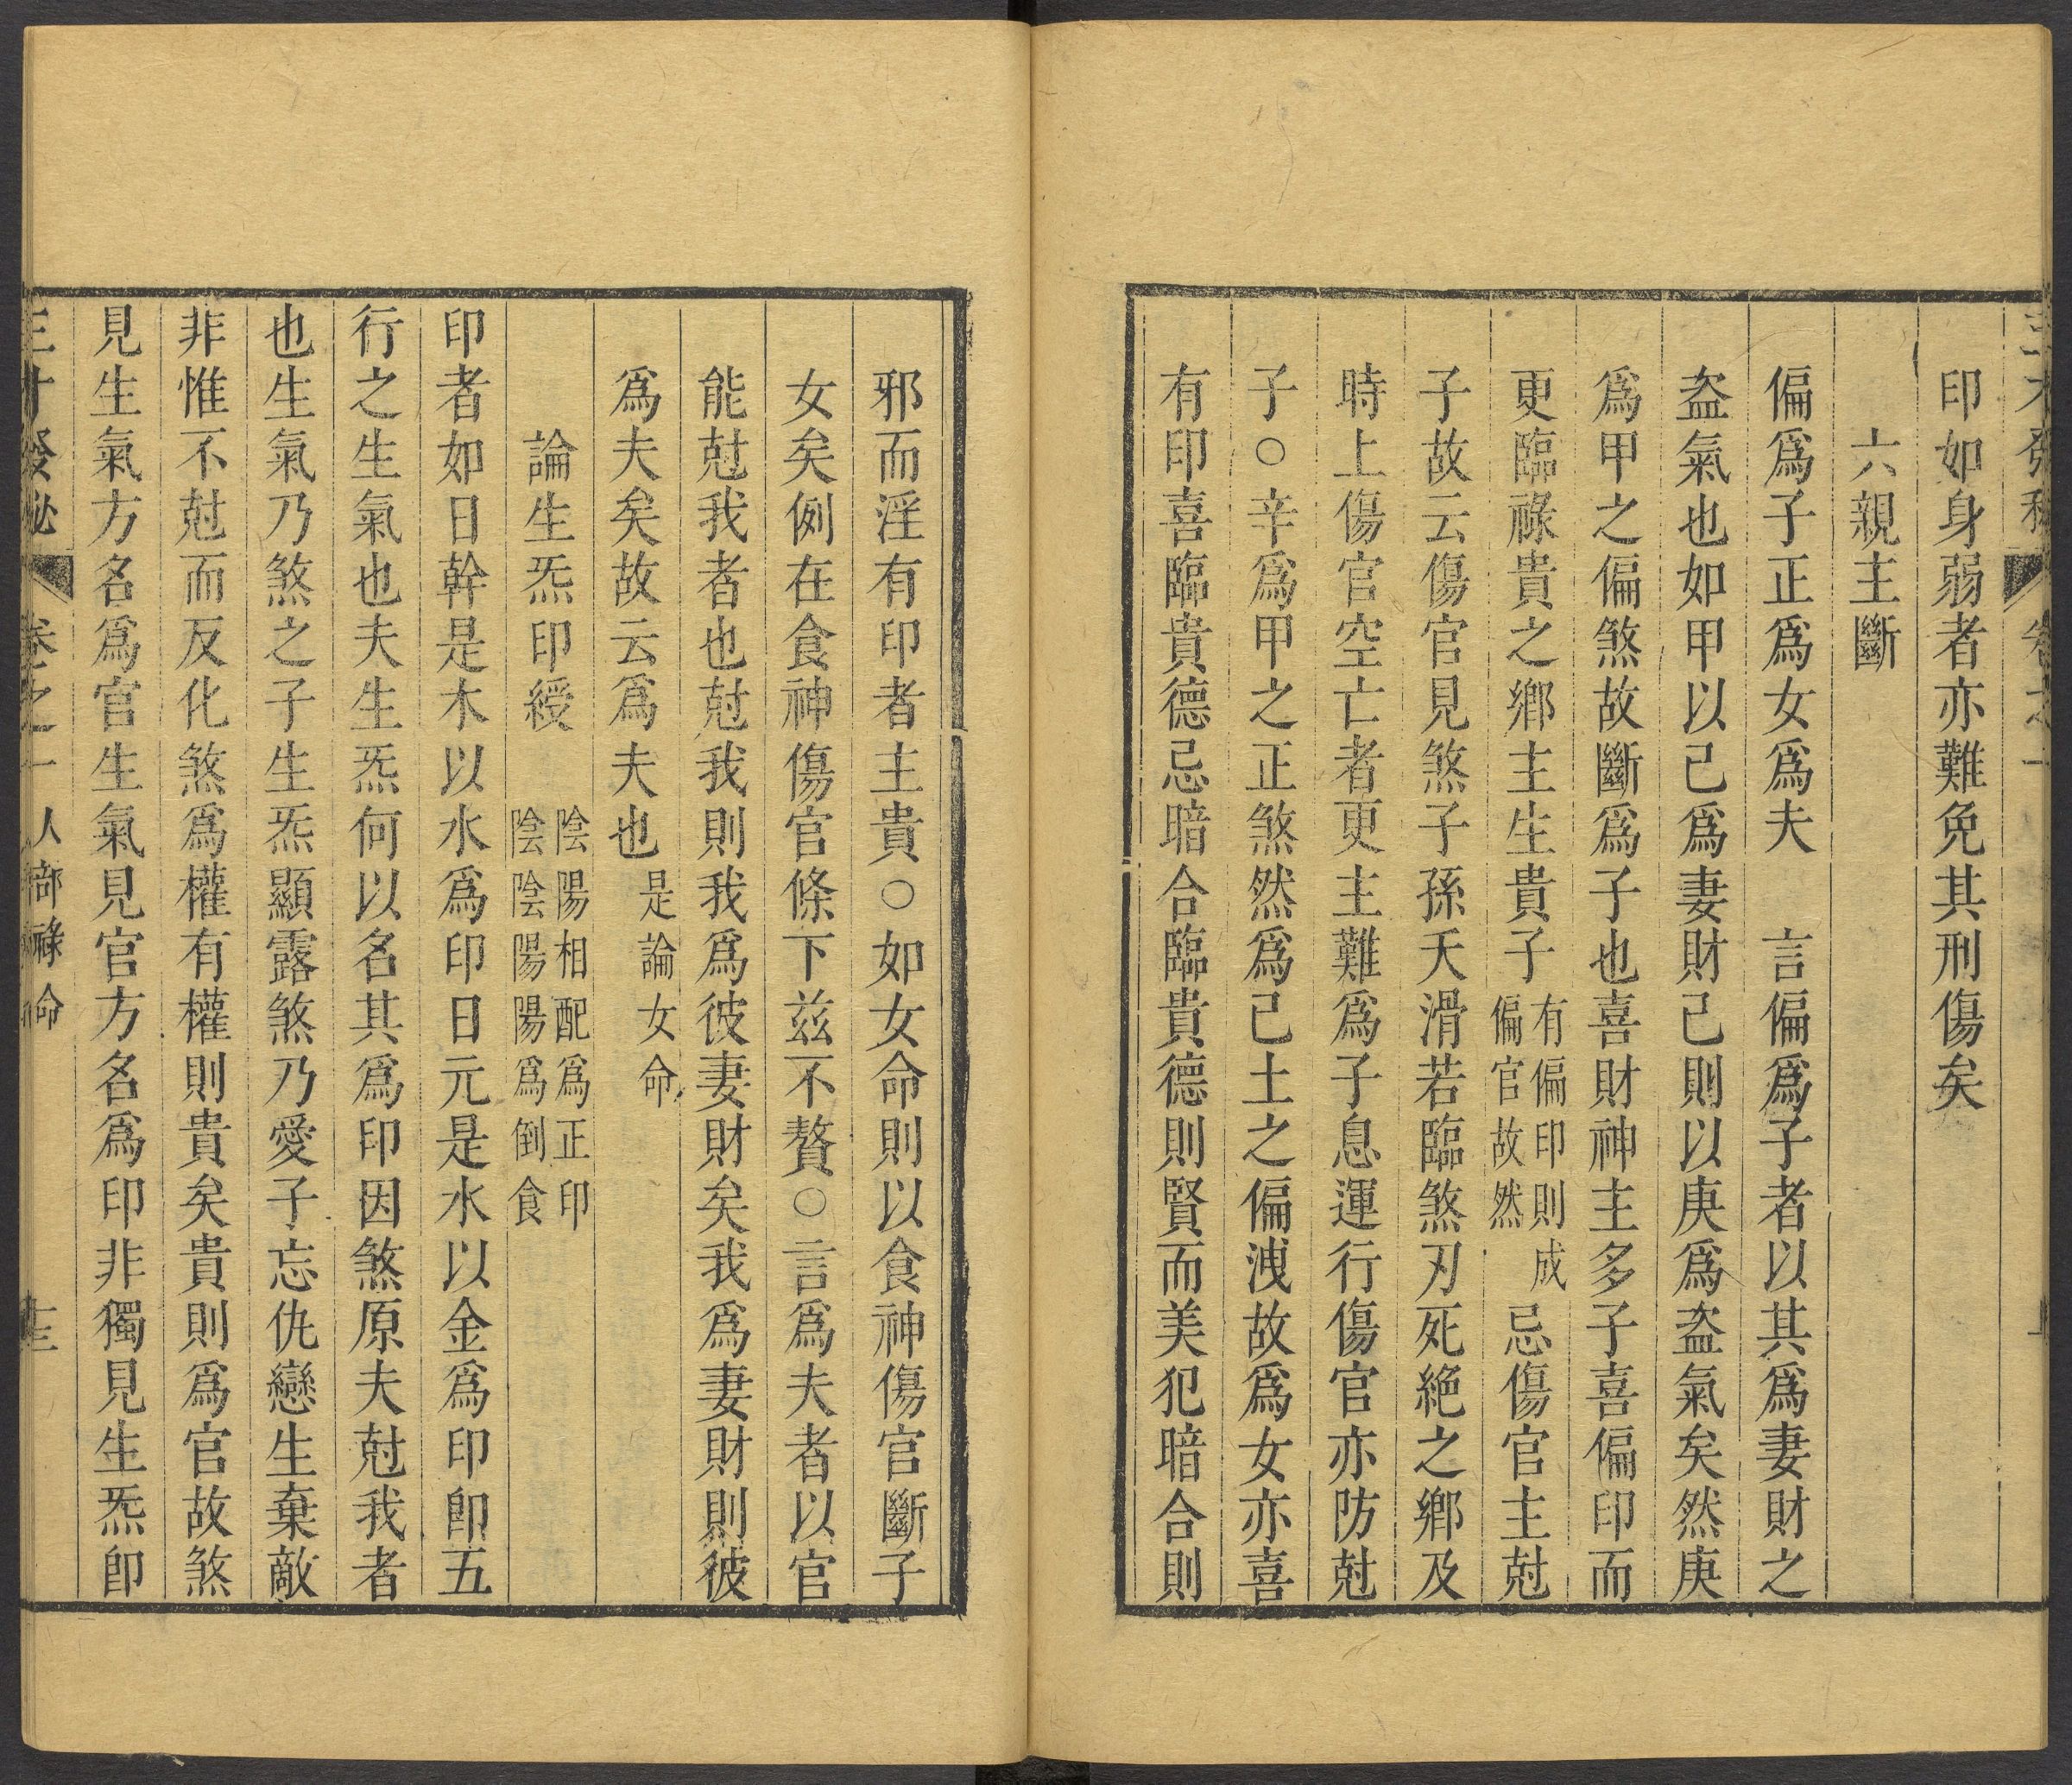 印如身弱者亦難免其刑傷矣
六親主斷
偏爲子正爲女爲夫　言偏爲子者以其爲妻財之
盗氣也如甲以己爲妻財己則以庚爲盗氣矣然庚
爲甲之偏煞故斷爲子也喜財神主多子喜偏印而
更臨祿貴之鄉主生貴子有偏印則成偏官故然忌傷官主尅
子故云傷官見煞子孫夭滑若臨煞刃死絶之鄉及
時上傷官空亡者更主難爲子息運行傷官亦防尅
子○辛爲甲之正煞然爲己土之偏洩故爲女亦喜
有印喜臨貴德忌暗合臨貴德則賢而美犯暗合則
邪而淫有印者主貴○如女命則以食神傷官斷子
女矣例在食神傷官條下茲不贅○言爲夫者以官
能尅我者也尅我則我爲彼妻財矣我爲妻財則彼
爲夫矣故云爲夫也是論女命
論生炁印綬　陰陽相配爲正印陰陰陽陽爲倒食
印者如日幹是木以水爲印日元是水以金爲印卽五
行之生氣也夫生炁何以名其爲印因煞原夫尅我者
也生氣乃煞之子生炁顯露煞乃愛子忘仇戀生棄敵
非惟不尅而反化煞爲權有權則貴矣貴則爲官故煞
見生氣方名爲官生氣見官方名爲印非獨見生炁卽
三才發秘　卷之一　人部祿命　十三